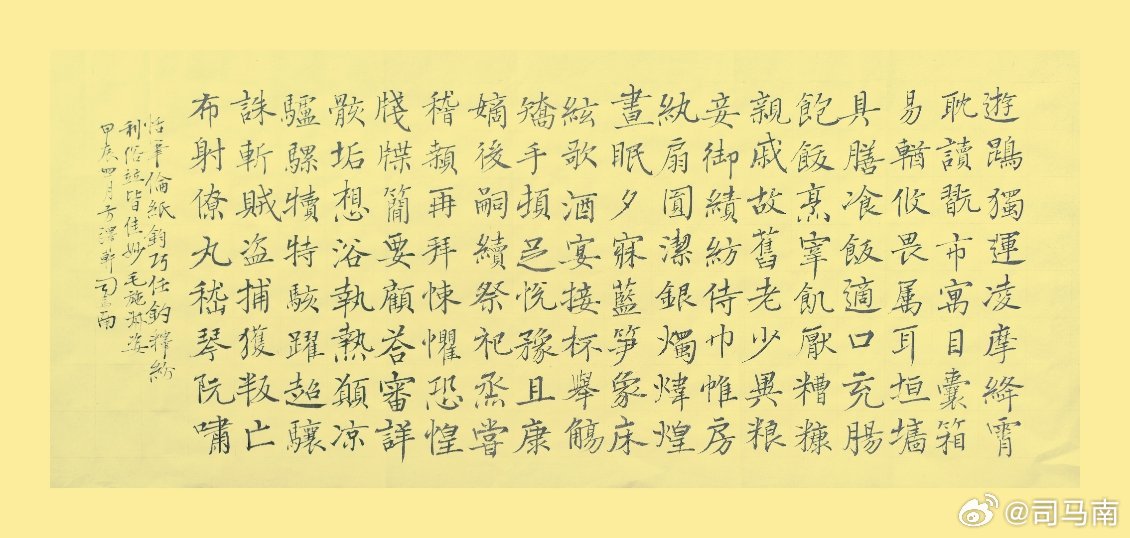 遊鵾獨運凌摩絳霄
耽讀翫市寓目囊箱
易輶攸畏属耳垣墻
具膳飡飯適口充腸
飽飫烹宰飢厭糟糠
親戚故舊老少異粮
妾御績紡侍巾帷房
紈扇圓潔銀燭煒煌
晝眠夕寐藍笋象床
絃歌酒宴接杯舉觴
矯手頓足悅豫且康
嫡後嗣續祭祀烝嘗
稽顙再拜悚懼恐惶
牋牒簡要顧荅審詳
骸垢想浴執熱願凉
驢騾犢特駭躍超驤
誅斬賊盗捕獲叛亡
布射僚丸嵇琴阮嘯
恬筆倫紙鈞巧任釣釋紛
利俗竝皆佳妙毛施淑姿
甲辰四月 司马南
@司马南